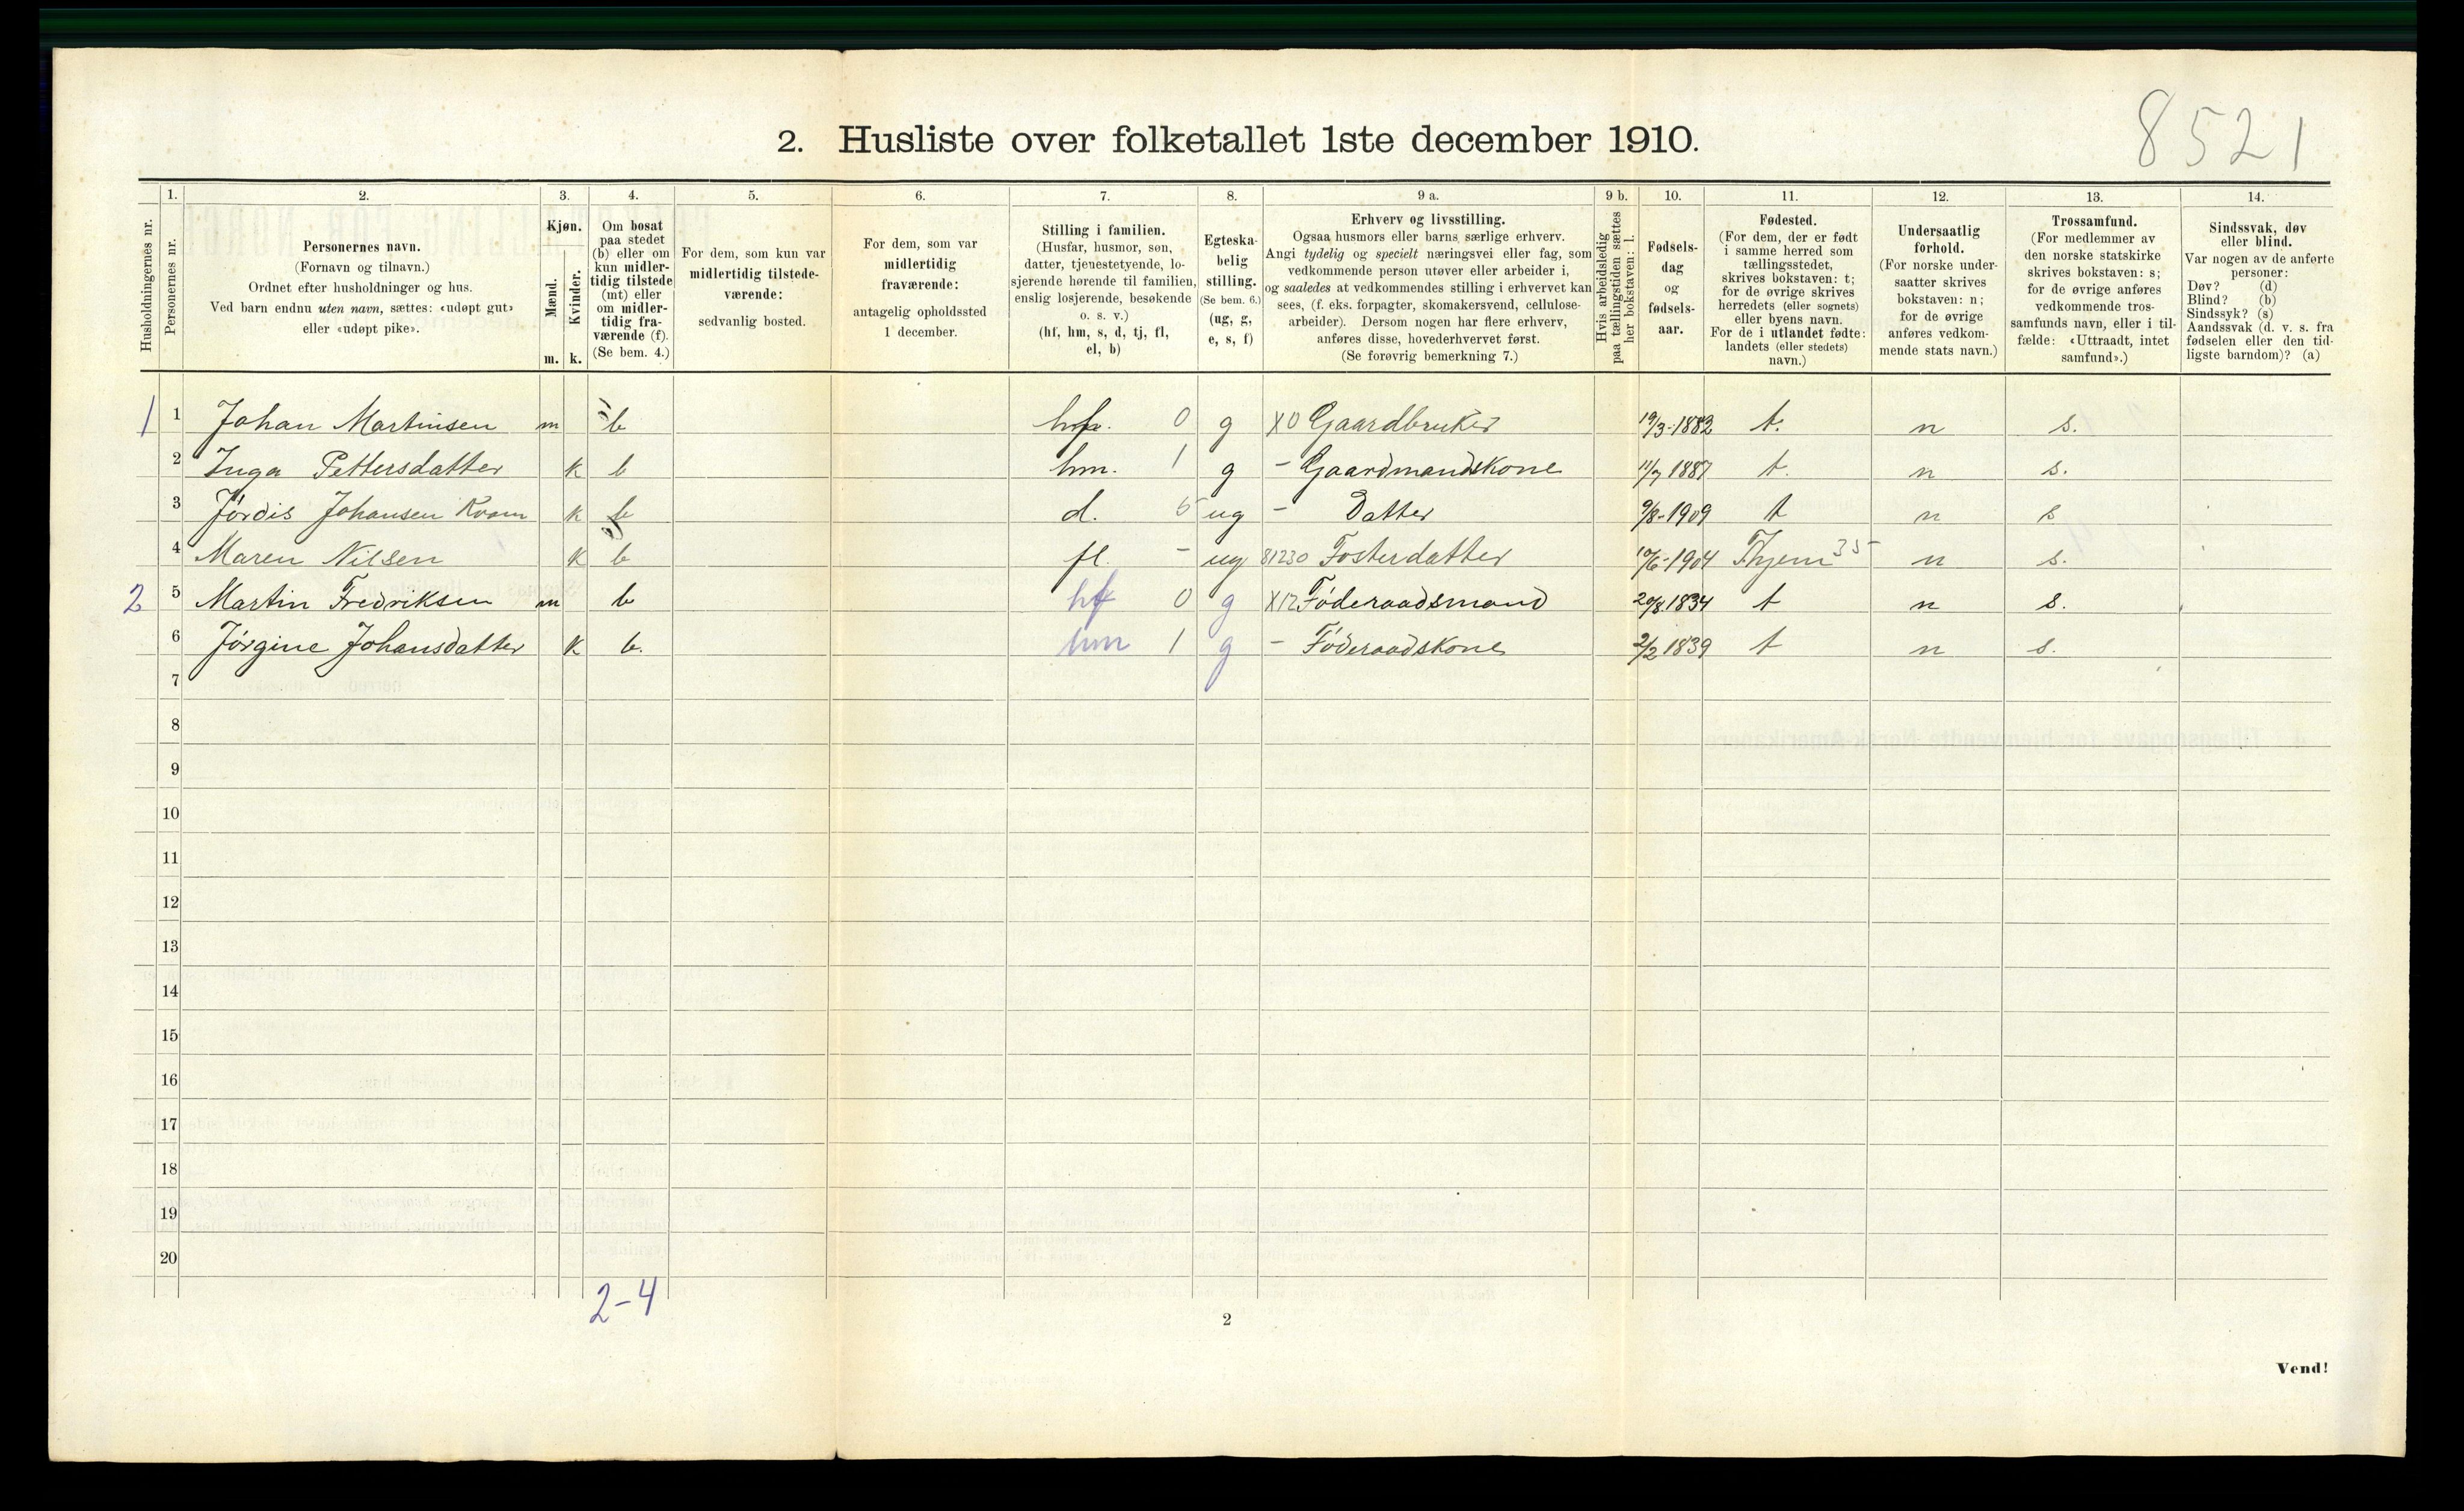 8521
2. Husliste over folketallet 1ste december 1910.
1. 2. 3. 4. 5. 6. 7. 8. 9 a. 9 b. 10. 11. 12. 13. 14.
Husholdningernes nr.
Personernes nr.
Personernes navn.
(Fornavn og tilnavn.)
Ordnet efter husholdninger og hus.
Ved barn endnu uten navn, sættes: «udøpt gut»
eller «udøpt pike».
Kjøn.
Mænd.
Kvinder.
m. k.
Om bosat
paa stedet
(b) eller om
kun midler-
tidig tilstede
(mt) eller
om midler-
tidig fra-
værende (f).
(Se bem. 4.)
For dem, som kun var
midlertidig tilstede-
værende:
sedvanlig bosted.
For dem, som var
midlertidig
fraværende:
antagelig opholdssted
1 december.
Stilling i familien.
(Husfar, husmor, søn,
datter, tjenestetyende, lo-
sjerende hørende til familien,
enslig losjerende, besøkende
o. s. v.)
(hf, hm, s, d, tj, fl,
el, b)
Egteska-
belig
stilling.
(Se bem. 6.)
(ug, g,
e, s, f)
Erhverv og livsstilling.
Ogsaa husmors eller barns særlige erhverv.
Angi tydelig og specielt næringsvei eller fag, som
vedkommende person utøver eller arbeider i,
og saaledes at vedkommendes stilling i erhvervet kan
sees, (f. eks. forpagter, skomakersvend, cellulose-
arbeider). Dersom nogen har flere erhverv,
anføres disse, hovederhvervet først.
(Se forøvrig bemerkning 7.)
Hvis arbeidsledig
paa tællingstiden sættes
her bokstaven: l.
Fødsels-
dag
og
fødsels-
aar.
Fødested.
(For dem, der er født
i samme herred som
tællingsstedet,
skrives bokstaven: t;
for de øvrige skrives
herredets (eller sognets)
eller byens navn.
For de i utlandet fødte:
landets (eller stedets)
navn.)
Undersaatlig
forhold.
(For norske under-
saatter skrives
bokstaven: n;
for de øvrige
anføres vedkom-
mende stats navn.)
Trossamfund.
(For medlemmer av
den norske statskirke
skrives bokstaven: s;
for de øvrige anføres
vedkommende tros-
samfunds navn, eller i til-
fælde: «Uttraadt, intet
samfund».)
Sindssvak, døv
eller blind.
Var nogen av de anførte
personer:
Døv? (d)
Blind? (b)
Sindssyk? (s)
Aandssvak (d. v. s. fra
fødselen eller den tid-
ligste barndom)? (a)
1 1 Johan Martinsen m b hf. 0 g X0 Gaardbruker 19/3-1882 t. n s.
2 Inga Pettersdatter k b hm. 1 g - Gaardmandskone 11/7 1887 t. n s.
3 Jørdis Johansen Kvam k b d. 5 ug - Datter 9/8-1909 t n s
4 Maren Nilsen k b fl. - ug 81230 Fosterdatter 10/6-1904 35 n s.
2 5 Martin Fredriksen m b hf 0 g X12 Føderaadsmand 20/8 1834 t n s.
6 Jørgine Johansdatter k b. hm 1 g - Føderaadskone 2/2 1839 t n s.
7
8
9
10
11
12
13
14
15
16
17
18
19
20
2-4
2
Vend!